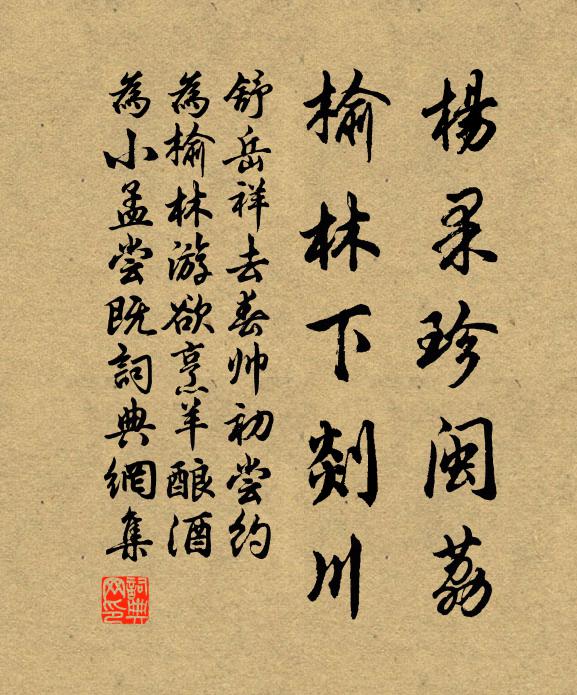 楊果珍闽荔
榆林下剡川
舒岳祥去春帅初尝约
為榆林游欲烹羊酿酒
為小孟尝既詞典網集
詞典
网印